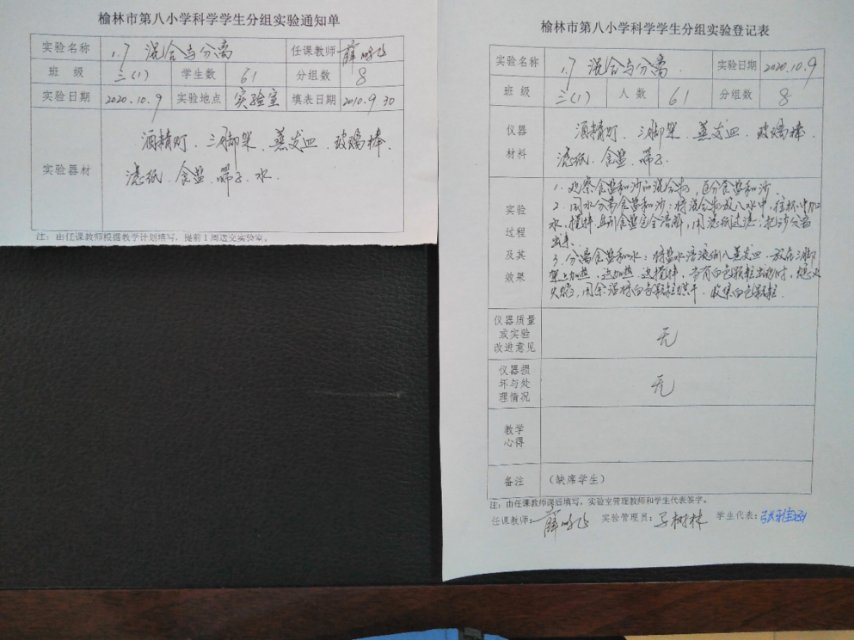 榆林市第八小学科学学生分组实验通知单
实验名称 1.7 混合与分离 任课教师 薛
班 级 三(1) 学生数 61 分组数 8
实验日期 2020.10.9 实验地点 实验室 填表日期 2010.9 30
实验器材
酒精灯. 三脚架. 蒸发皿. 玻璃棒.
滤纸. 食盐. 筛子. 水.
注: 由任课教师根据教学计划填写, 提前1周送交实验室。
榆林市第八小学科学学生分组实验登记表
实验名称 1.7 混合与分离. 实验日期 2020.10.9
班 级 三(1) 人 数 61 分组数 8
仪器
材料
酒精灯. 三脚架. 蒸发皿. 玻璃棒.
滤纸. 食盐. 筛子.
实验
过程
及其
效果
1. 观察食盐和沙的混合物, 区分食盐和沙.
2. 用水分离食盐和沙: 将混合物放入水中, 往杯中加
水, 搅拌直到食盐完全溶解, 用滤纸过滤, 把沙分离
出来.
3. 分离食盐和水: 将盐水溶液倒入蒸发皿, 放在三脚
架上加热, 边加热, 边搅拌, 当有白色颗粒出现时, 熄灭
火焰, 用余温将白色颗粒烘干, 收集白色颗粒.
仪器质量
或实验
改进意见
无
仪器损
坏与处
理情况
无
教学
心得
备注 (缺席学生)
注: 由任课教师课后填写, 实验室管理教师和学生代表签字。
任课教师: 薛 实验管理员: 马树林 学生代表: 张